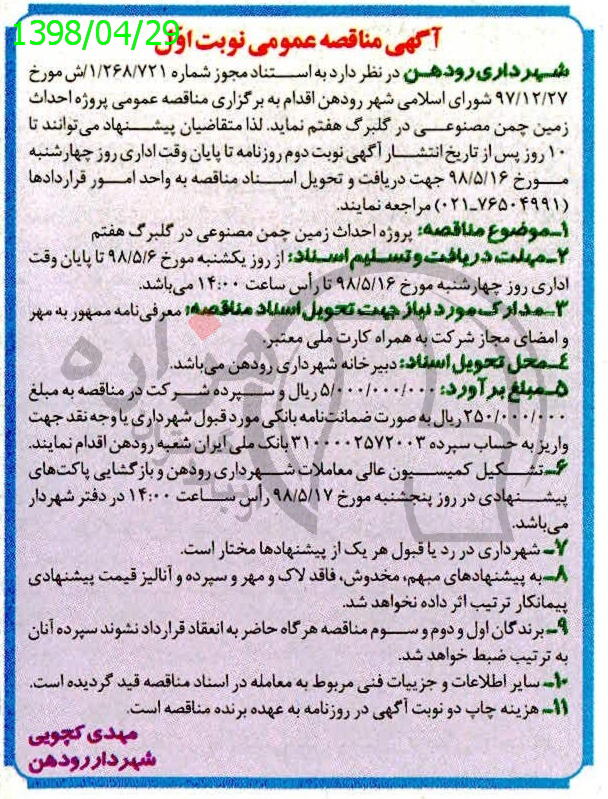 1398/04/29
آگهی مناقصه عمومی نوبت اول
شهرداری رودهن در نظر دارد به استناد مجوز شماره ۱/۲۶۸/۷۲۱/ش مورخ
۹۷/۱۲/۲۷ شورای اسلامی شهر رودهن اقدام به برگزاری مناقصه عمومی پروژه احداث
زمین چمن مصنوعی در گلبرگ هفتم نماید. لذا متقاضیان پیشنهاد می‌توانند تا
۱۰ روز پس از تاریخ انتشار آگهی نوبت دوم روزنامه تا پایان وقت اداری روز چهارشنبه
مورخ ۹۸/۵/۱۶ جهت دریافت و تحویل اسناد مناقصه به واحد امور قراردادها
(۰۲۱-۷۶۵۰۴۹۹۱) مراجعه نمایند.
۱ـ موضوع مناقصه: پروژه احداث زمین چمن مصنوعی در گلبرگ هفتم
۲ـ مهلت دریافت و تسلیم اسناد: از روز یکشنبه مورخ ۹۸/۵/۶ تا پایان وقت
اداری روز چهارشنبه مورخ ۹۸/۵/۱۶ تا رأس ساعت ۱۴:۰۰ می‌باشد.
۳ـ مدارک مورد نیاز جهت تحویل اسناد مناقصه: معرفی‌نامه ممهور به مهر
و امضای مجاز شرکت به همراه کارت ملی معتبر.
۴ـ محل تحویل اسناد: دبیرخانه شهرداری رودهن می‌باشد.
۵ـ مبلغ برآورد: ۵/۰۰۰/۰۰۰/۰۰۰ ریال و سپرده شرکت در مناقصه به مبلغ
۲۵۰/۰۰۰/۰۰۰ ریال به صورت ضمانت‌نامه بانکی مورد قبول شهرداری یا وجه نقد جهت
واریز به حساب سپرده ۳۱۰۰۰۰۲۵۷۲۰۰۳ بانک ملی ایران شعبه رودهن اقدام نمایند.
۶ـ تشکیل کمیسیون عالی معاملات شهرداری رودهن و بازگشایی پاکت‌های
پیشنهادی در روز پنجشنبه مورخ ۹۸/۵/۱۷ رأس ساعت ۱۴:۰۰ در دفتر شهردار
می‌باشد.
۷ـ شهرداری در رد یا قبول هر یک از پیشنهادها مختار است.
۸ـ به پیشنهادهای مبهم، مخدوش، فاقد لاک و مهر و سپرده و آنالیز قیمت پیشنهادی
پیمانکار ترتیب اثر داده نخواهد شد.
۹ـ برندگان اول و دوم و سوم مناقصه هرگاه حاضر به انعقاد قرارداد نشوند سپرده آنان
به ترتیب ضبط خواهد شد.
۱۰ـ سایر اطلاعات و جزییات فنی مربوط به معامله در اسناد مناقصه قید گردیده است.
۱۱ـ هزینه چاپ دو نوبت آگهی در روزنامه به عهده برنده مناقصه است.
مهدی کچویی
شهردار رودهن
هزاره